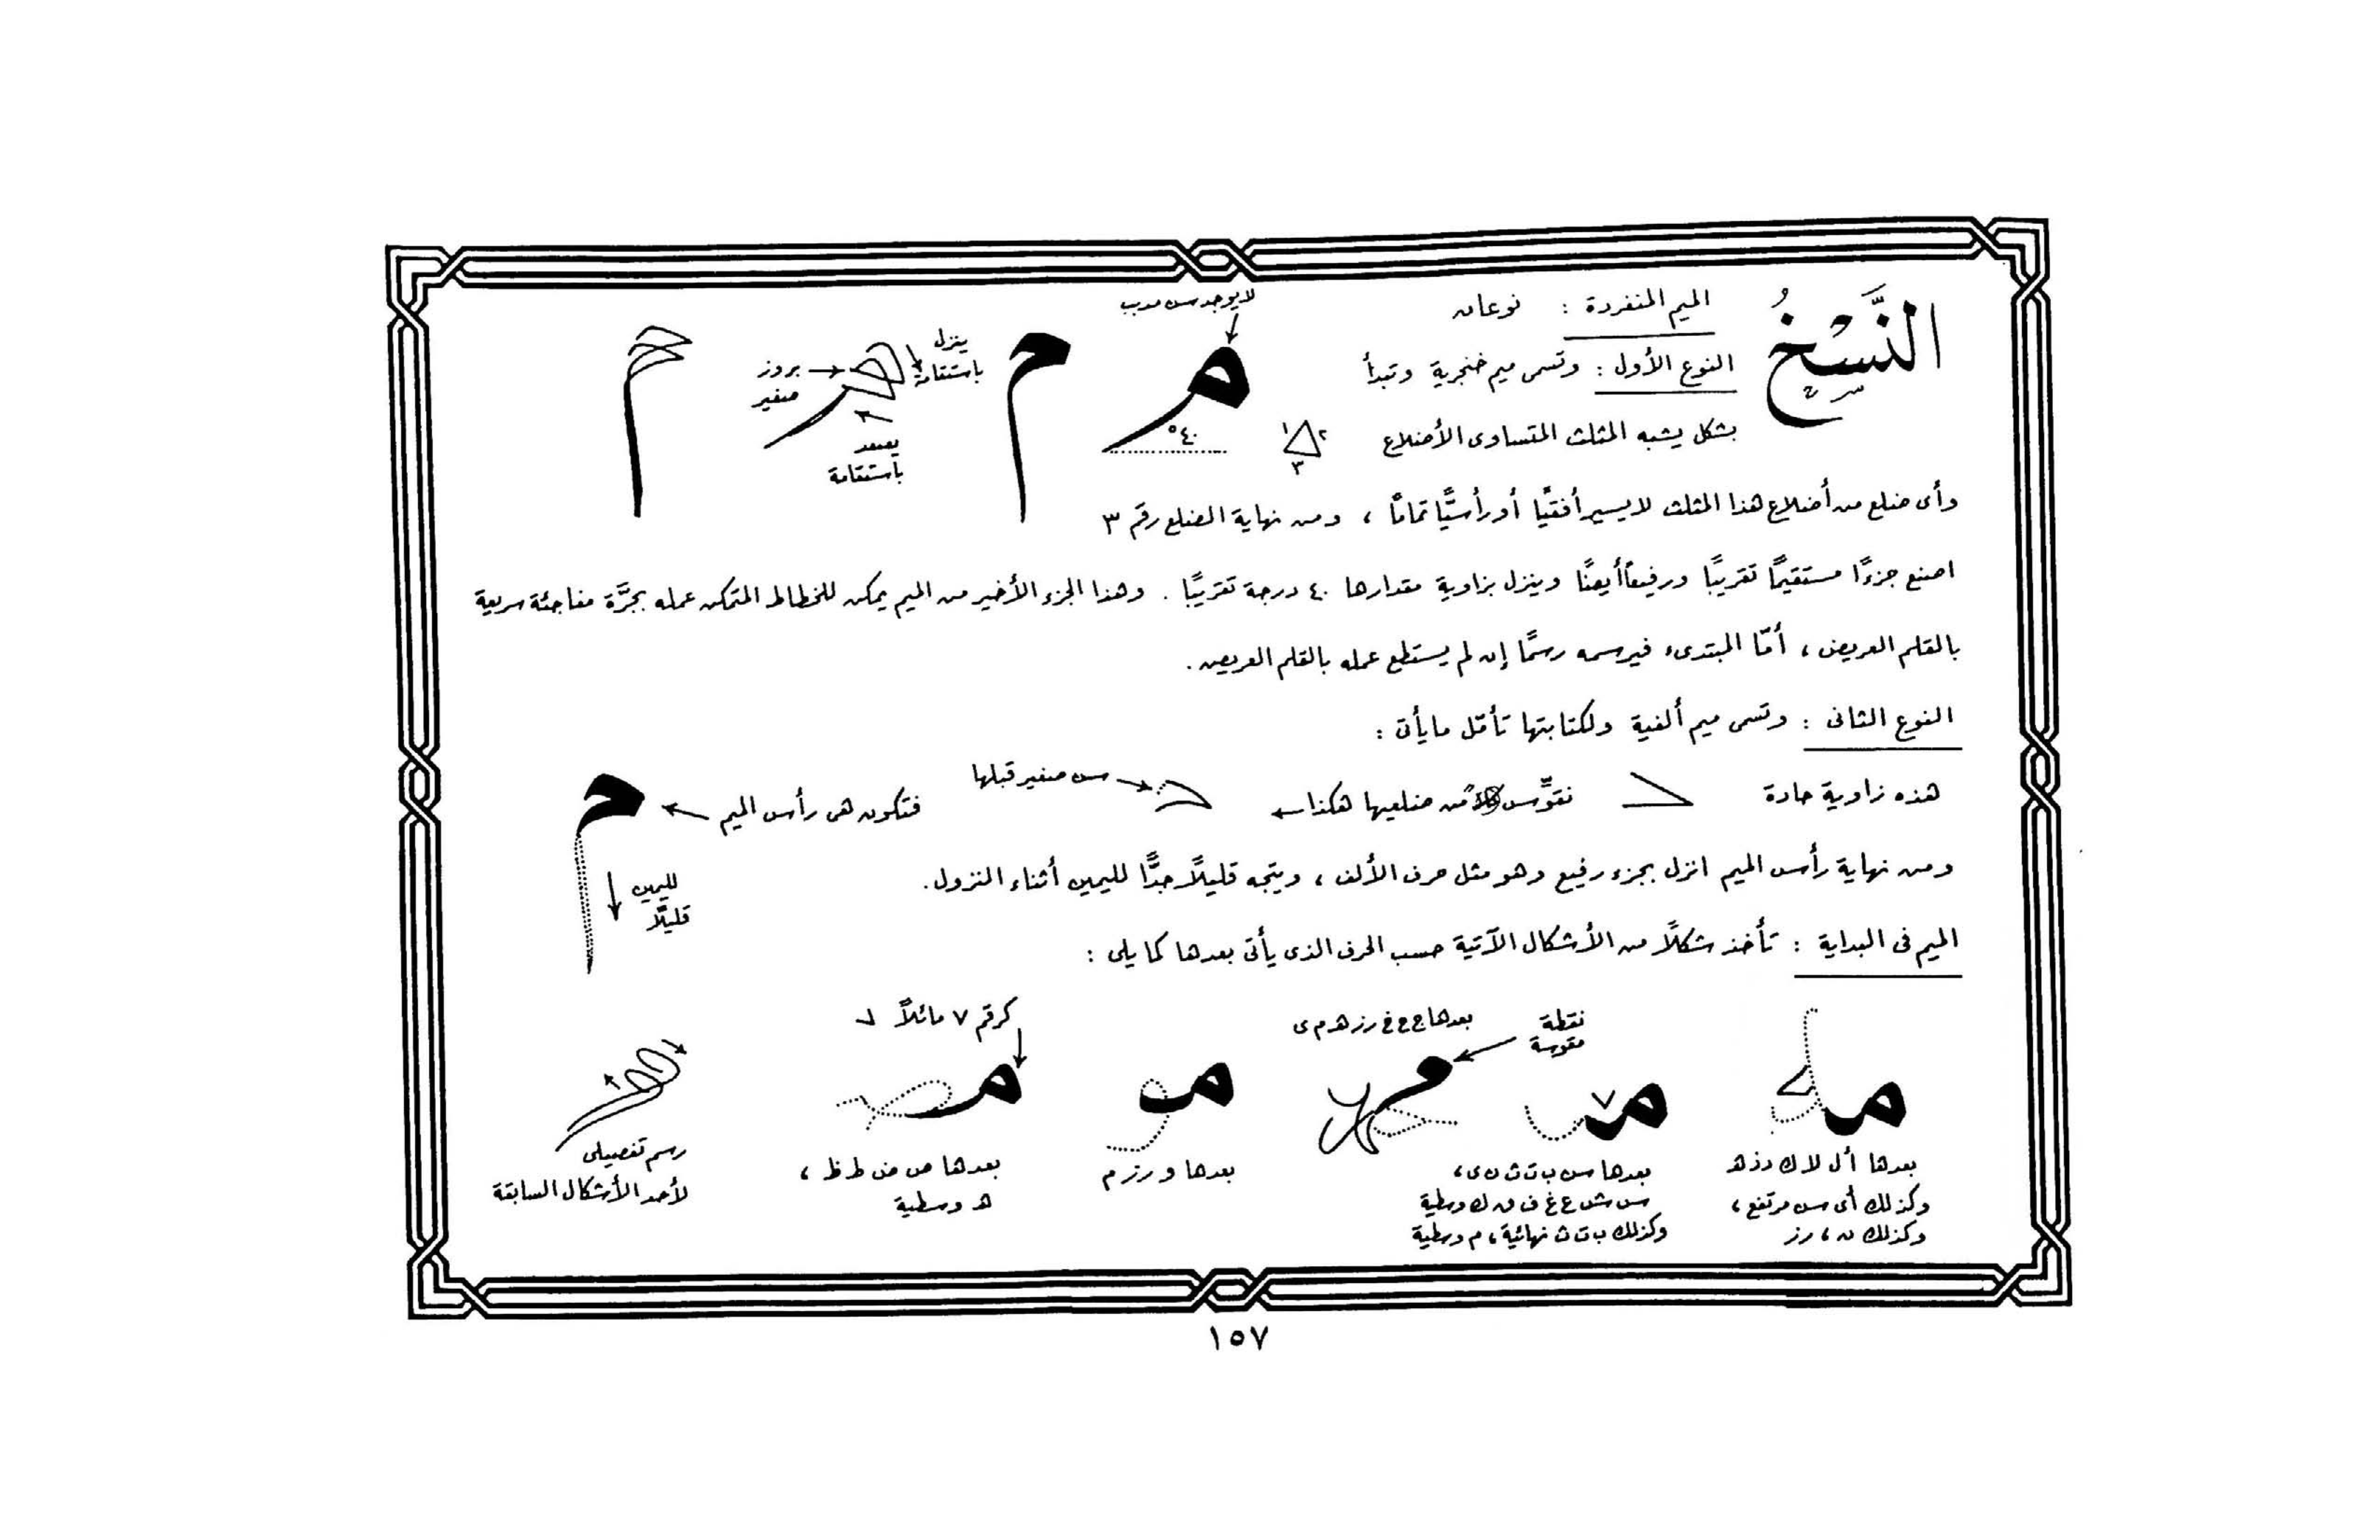 النَّسْخُ
الميم المنفردة : نوعان
النوع الأول : وتسمى ميم خنجرية وتبدأ
بشكل يشبه المثلث المتساوى الأضلاع
١ ٢ ٣
لا يوجد سن مدبب
٤٠°
م م
ينزل باستقامة
بروز صغير
يصعد باستقامة
وأى ضلع من أضلاع هذا المثلث لا يسير أفقيًا أو رأسيًّا تمامًا ، ومن نهاية الضلع رقم ٣
اصنع جزءًا مستقيمًا تقريبًا ورفيعاً أيضًا وينزل بزاوية مقدارها ٤٠ درجة تقريبًا . وهذا الجزء الأخير من الميم يمكن للخطاط المتمكن عمله بجرَّة مفاجئة سريعة
بالقلم العريض ، أمّا المبتدىء فيرسمه رسمًا إن لم يستطع عمله بالقلم العريض .
النوع الثانى : وتسمى ميم ألفية ولكتابتها تأمّل ما يأتى :
هذه زاوية حادة
نقوِّس من ضلعيها هكذا
سن صغير قبلها
فتكون هى رأس الميم
م
لليمين
قليلًا
ومن نهاية رأس الميم انزل بجزء رفيع وهو مثل حرف الألف ، ويتجه قليلاً جدًّا لليمين أثناء النزول .
الميم فى البداية : تأخذ شكلًا من الأشكال الآتية حسب الحرف الذى يأتى بعدها كما يلى :
بعدها أ ل لا ك د ذ ه
وكذلك أى سن مرتفع ،
وكذلك ن ، ر ز
بعدها س ب ت ث ن ى ،
س ش ع غ ف ق ك وسطية
وكذلك ب ت ث نهائية ، م وسطية
نقطة
مقوسة
بعدها ج ح خ ر ز ه م ى
بعدها و ر ز م
كرقم ٧ مائلاً
بعدها ص ض ط ظ ،
ه وسطية
رسم تفصيلى
لأحد الأشكال السابقة
١٥٧